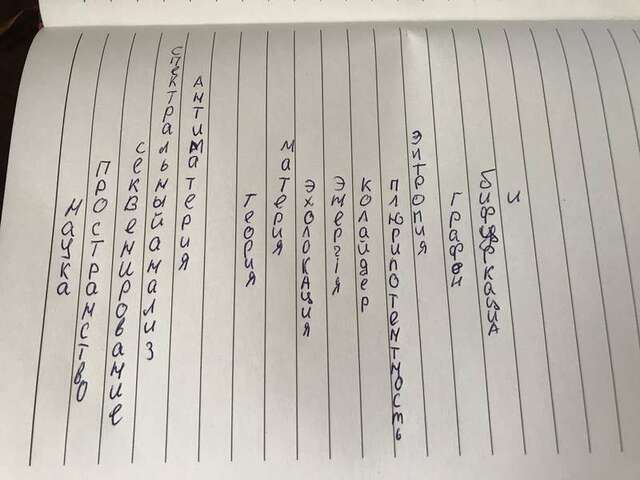 наука
пространство
секвенирование
спектральныйанализ
антиматерия
теория
материя
эхолокация
энергiя
колайдер
плюрипотентность
энтропия
графен
бифуркация
и